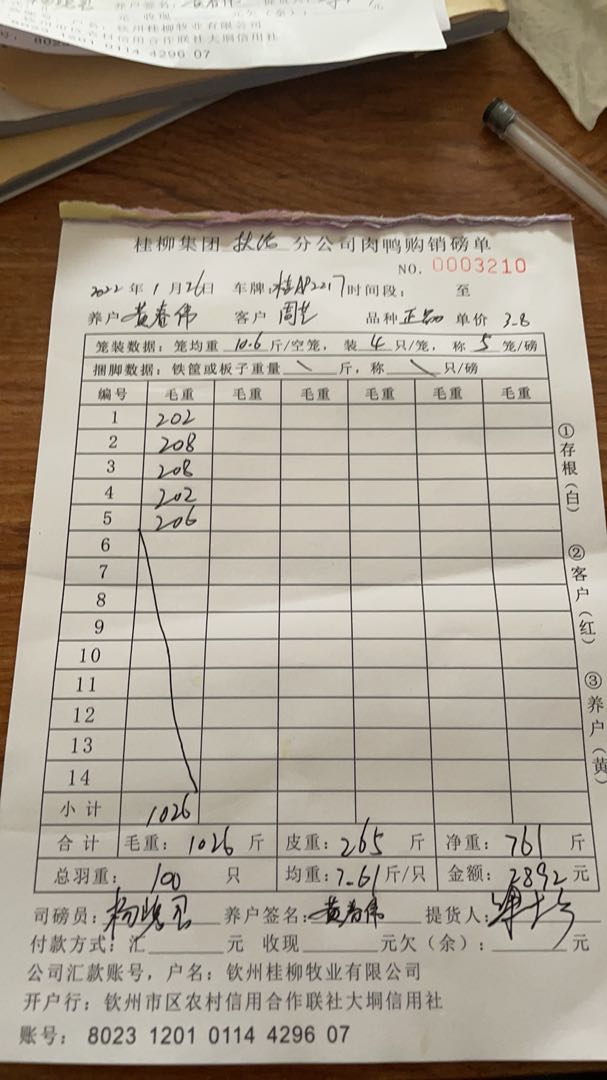 养户签名:
元 收现 元欠(余): 元
户名: 钦州桂柳牧业有限公司
农村信用合作联社大垌信用社
8023 0114 4296 07
桂柳集团 扶绥 分公司肉鸭购销磅单
NO. 0003210
2022 年 1 月 26日 车牌: 桂AP2217 时间段: 至
养户 黄春伟 客户 周艺 品种 正品 单价 3.8
笼装数据: 笼均重 10.6 斤/空笼, 装 4 只/笼, 称 5 笼/磅
捆脚数据: 铁筐或板子重量 \ 斤, 称 \ 只/磅
编号 毛重 毛重 毛重 毛重 毛重 毛重
1 202
2 208
3 208
4 202
5 206
6
7
8
9
10
11
12
13
14
小计 1026
合计 毛重: 1026 斤 皮重: 265 斤 净重: 761 斤
总羽重: 100 只 均重: 7.61 斤/只 金额: 2892 元
司磅员: 养户签名: 黄春伟 提货人:
付款方式: 汇 元 收现 元欠(余): 元
公司汇款账号, 户名: 钦州桂柳牧业有限公司
开户行: 钦州市区农村信用合作联社大垌信用社
账号: 8023 1201 0114 4296 07
①存根(白)
②客户(红)
③养户(黄)